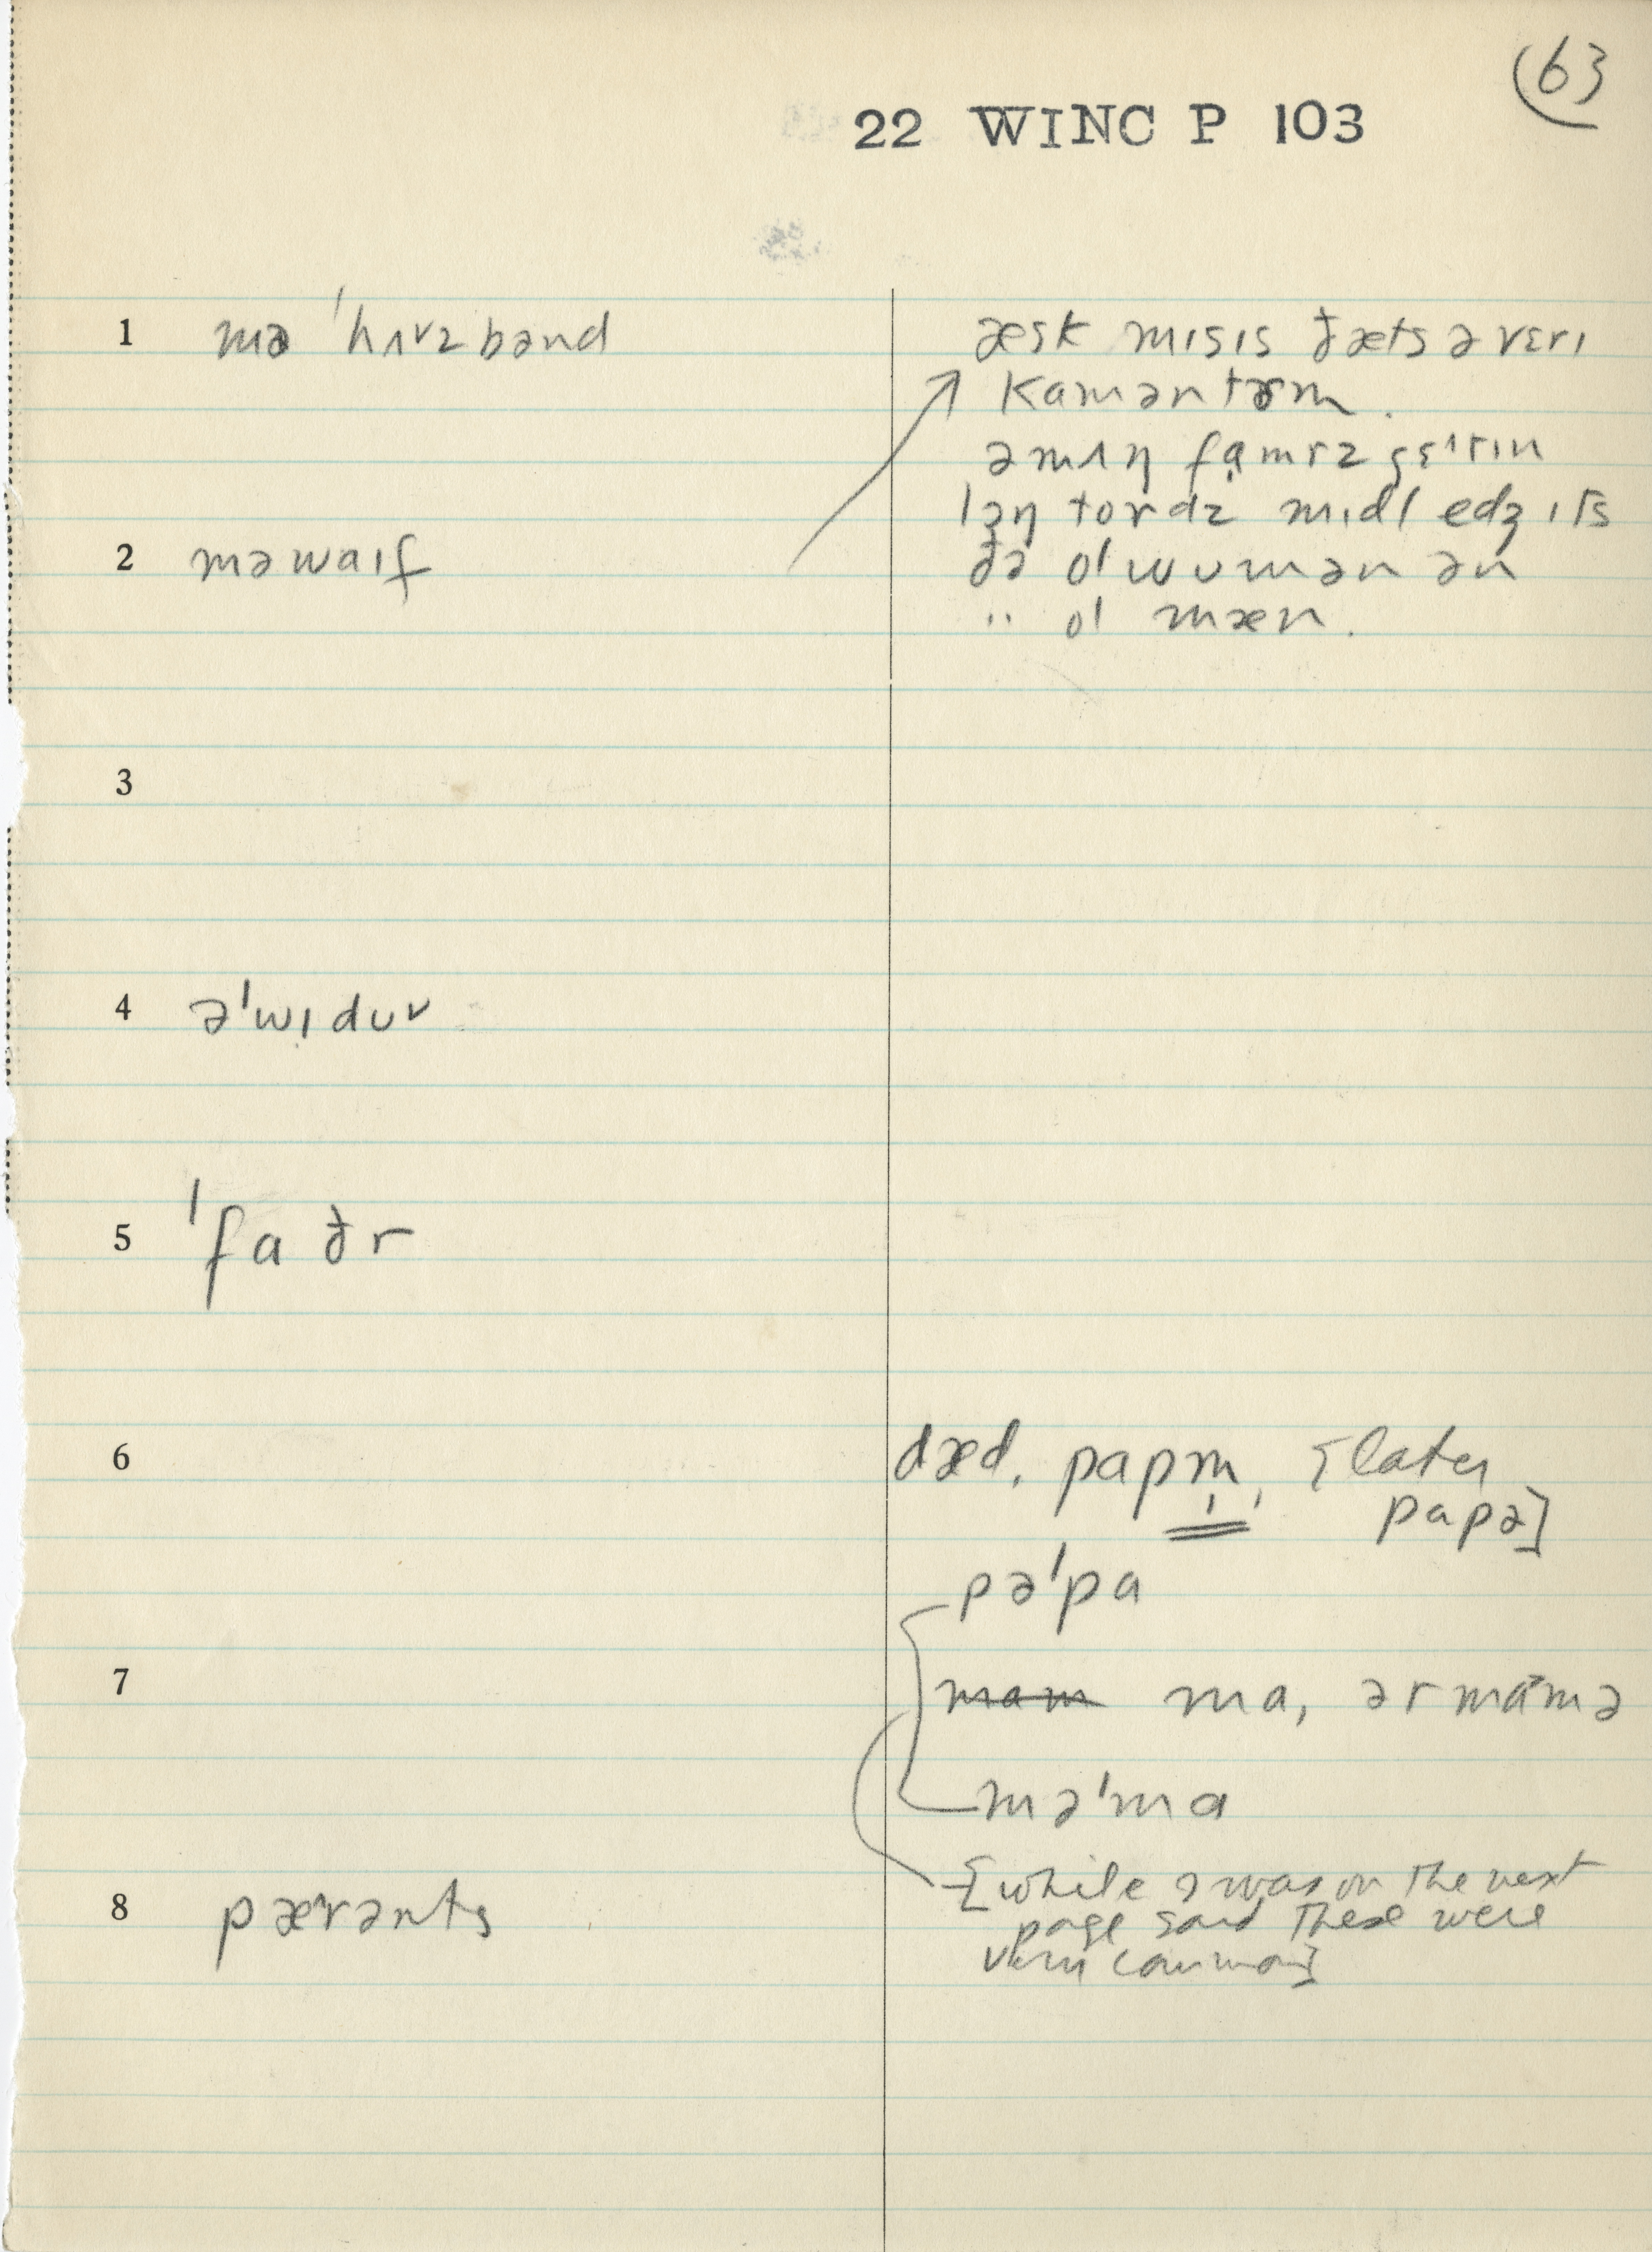 (63
22 WINC P 103
1 mə ˈhʌvzbənd
æsk mɪsɪs ðæts ə vɛrɪ
kamən tɚm.
2 mə waɪf
lɔŋ tordz mɪdl edʒ ɪts
ðə ol wumən ən
〃 ol mæn.
3
4 əˈwɪduv
5 ˈfaðr
6 dæd, papm̩, [later
papə]
pəˈpa
7 ~~mam~~ ma, ər mamə
məˈma
[while I was on the next
8 pærənts
page said these were
very common]